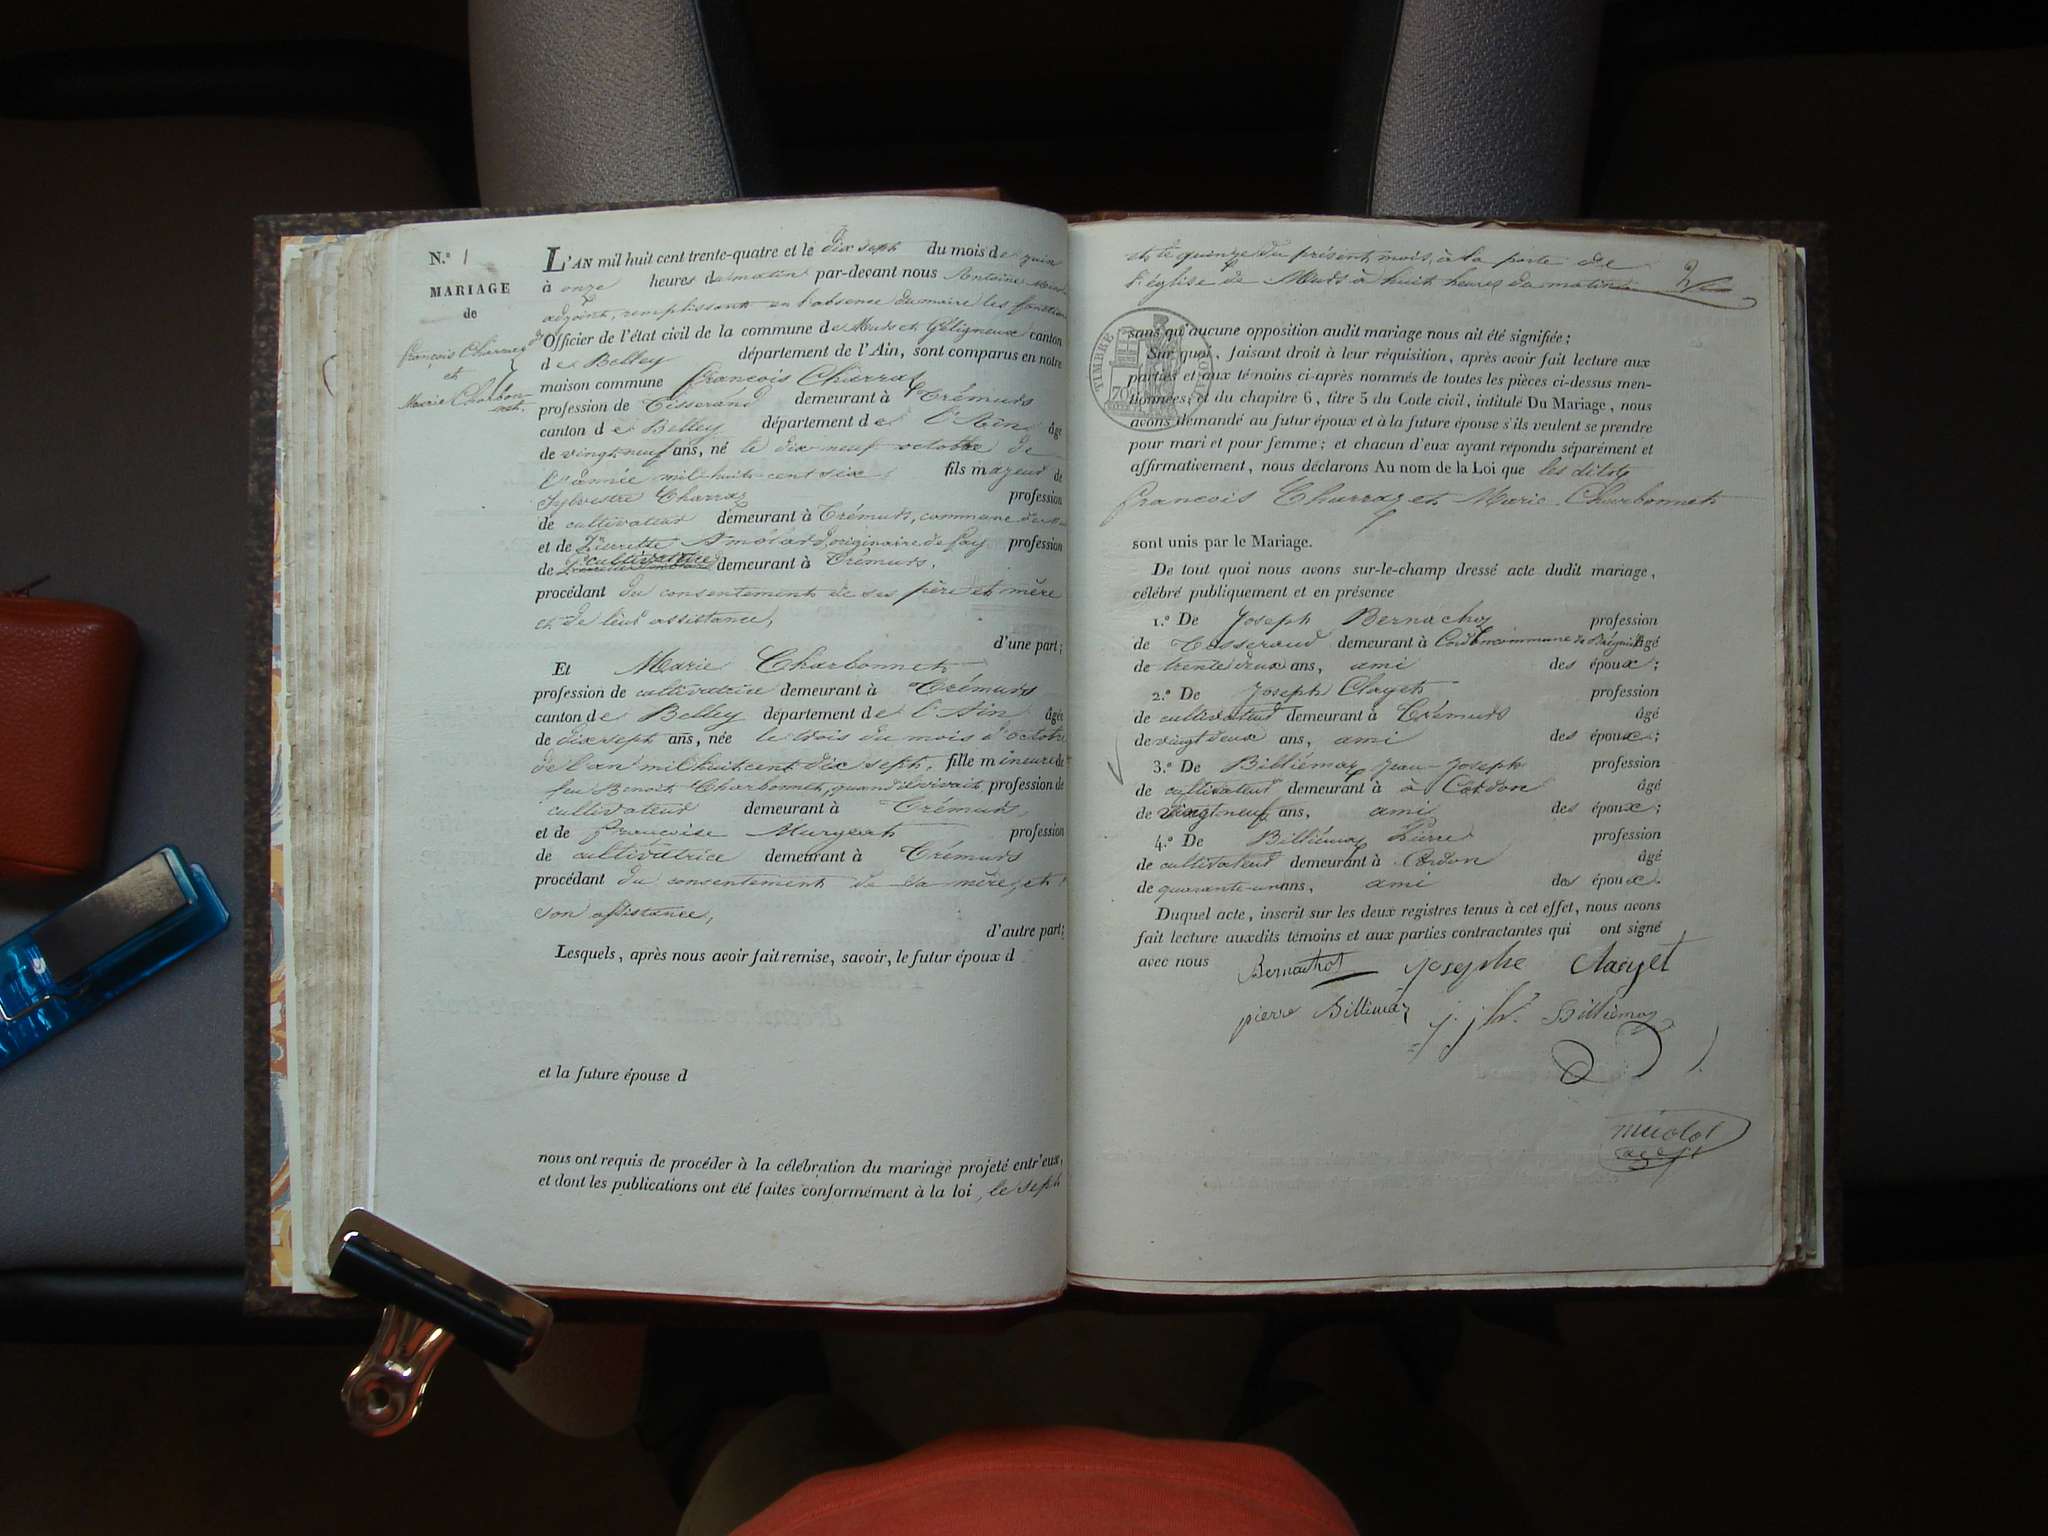 N.º 1
MARIAGE
de
françois Charraz
et
Marie Charbon-
net.
L'AN mil huit cent trente-quatre et le dix sept du mois de juin
à onze heures du matin par-devant nous Antoine
adjoint, remplissant en l'absence du maire les fonctions
Officier de l'état civil de la commune de Murs et Géligneux canton
de Belley département de l'Ain, sont comparus en notre
maison commune françois Charraz
profession de Tisserand demeurant à Crémurs
canton de Belley département de l'Ain âgé
de vingt neuf ans, né le dix neuf octobre de
l'année mil huit cent six fils majeur de
Sylvestre Charraz profession
de cultivateur demeurant à Crémurs, commune de
et de Pierrette Amolard, originaire de fay profession
de cultivatrice demeurant à Crémurs,
procédant du consentement de ses père et mère
et de leur assistance,
d'une part;
Et Marie Charbonnet
profession de cultivatrice demeurant à Crémurs
canton de Belley département de l'Ain âgée
de dix sept ans, née le trois du mois d'octobre
de l'an mil huit cent dix sept, fille mineure de
feu Benoit Charbonnet, quand il vivait profession de
cultivateur demeurant à Crémurs,
et de françoise Murgeat profession
de cultivatrice demeurant à Crémurs
procédant du consentement de sa mère, et
son assistance,
d'autre part;
Lesquels, après nous avoir fait remise, savoir, le futur époux d
et la future épouse d
nous ont requis de procéder à la célébration du mariage projeté entr'eux,
et dont les publications ont été faites conformément à la loi, le sept
et le quinze du présent mois, à la porte de
l'église de Murs à huit heures du matin
TIMBRE ROYAL
70c
sans qu'aucune opposition audit mariage nous ait été signifiée;
Sur quoi, faisant droit à leur réquisition, après avoir fait lecture aux
parties et aux témoins ci-après nommés de toutes les pièces ci-dessus men-
tionnées, et du chapitre 6, titre 5 du Code civil, intitulé Du Mariage, nous
avons demandé au futur époux et à la future épouse s'ils veulent se prendre
pour mari et pour femme; et chacun d'eux ayant répondu séparément et
affirmativement, nous déclarons Au nom de la Loi que les dits
françois Charraz et Marie Charbonnet
sont unis par le Mariage.
De tout quoi nous avons sur-le-champ dressé acte dudit mariage,
célébré publiquement et en présence
1.º De Joseph Bernachoz profession
de Tisserand demeurant à commune de Brégnier âgé
de trente deux ans, ami des époux;
2.º De Joseph Clayet profession
de cultivateur demeurant à Crémurs âgé
de vingt deux ans, ami des époux;
3.º De Billiémaz Jean-Joseph profession
de cultivateur demeurant à à Cordon âgé
de vingt neuf ans, ami des époux;
4.º De Billiémaz Pierre profession
de cultivateur demeurant à Cordon âgé
de quarante un ans, ami des époux.
Duquel acte, inscrit sur les deux registres tenus à cet effet, nous avons
fait lecture auxdits témoins et aux parties contractantes qui ont signé
avec nous Bernachot Josephe Clayet
pierre Billiemaz j. jh. Billiémaz